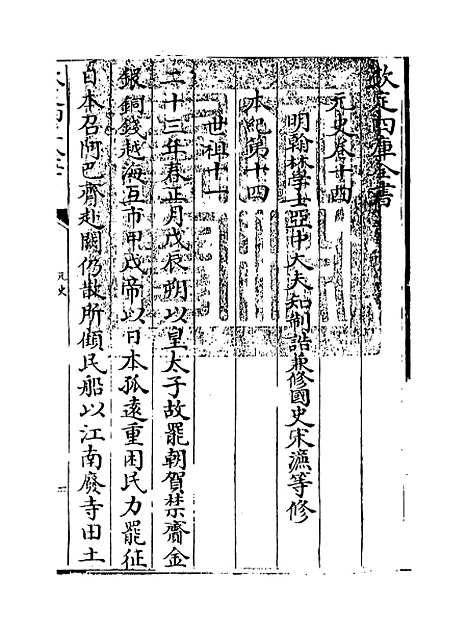 欽定四庫全書
元史卷十四
明翰林學士亞中大夫知制誥兼修國史宋濂等修
本紀第十四
世祖十一
二十三年春正月戊辰朔以皇太子故罷朝賀禁齎金
銀銅錢越海互市甲戌帝以日本孤遠重困民力罷征
日本召阿巴齊赴闕仍散所傾民船以江南廢寺田土
元史